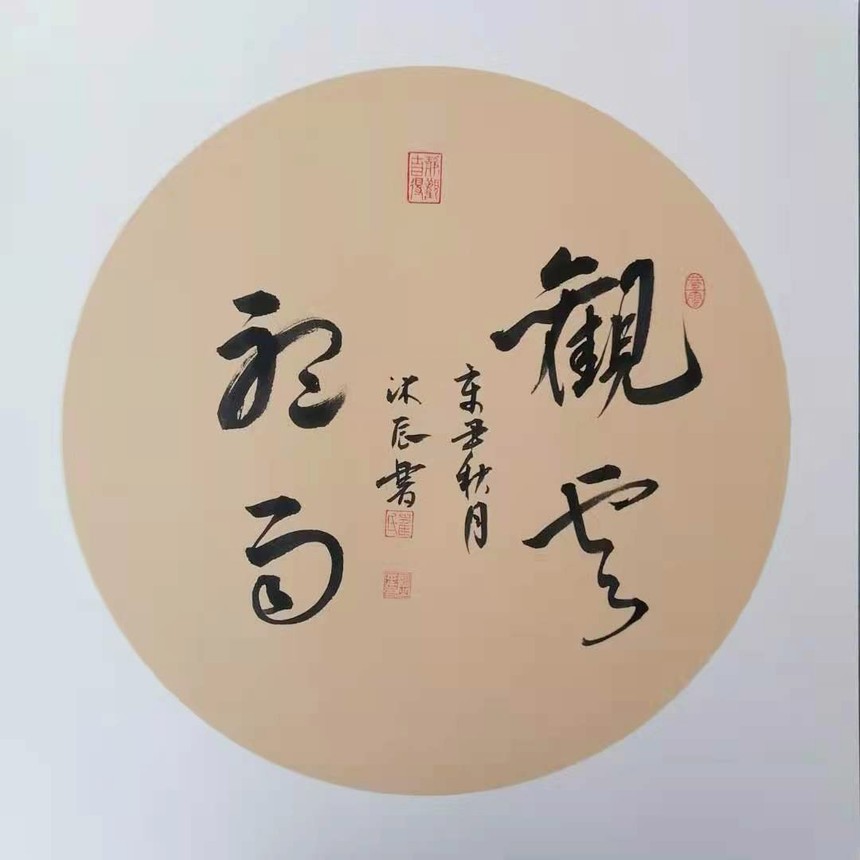 觀雲
聽雨
辛丑秋月
沐辰書